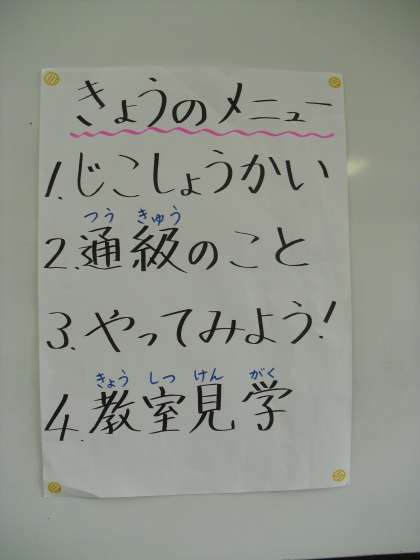 きょうのメニュー
1.じこしょうかい
つう きゅう
2.通級のこと
3.やってみよう!
きょう しつ けん がく
4.教室見学